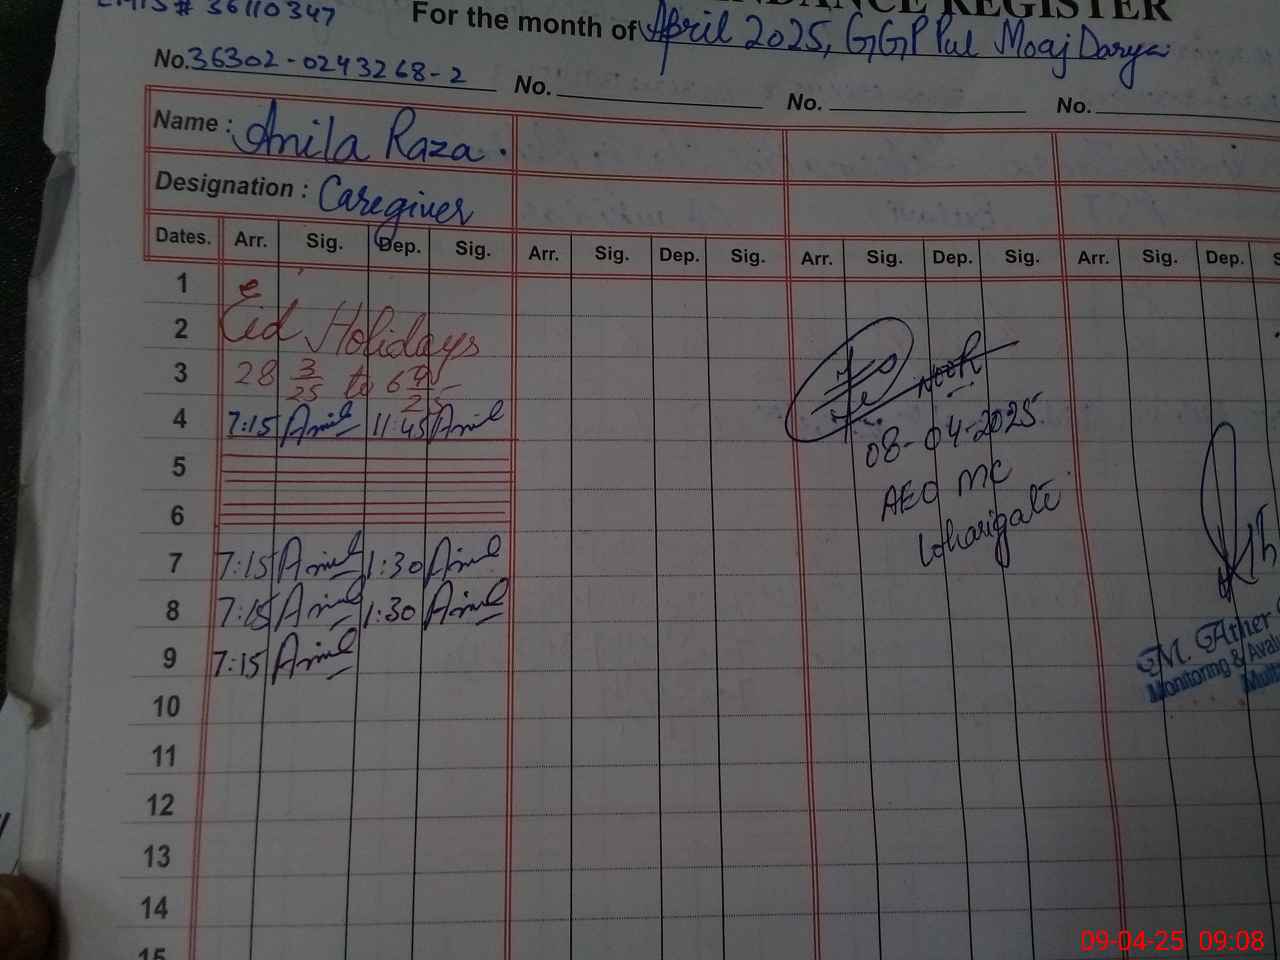 EMIS# 36110347
ATTENDANCE REGISTER
For the month of April 2025, GGP Pul Moaj Darya
No. 36302-0243268-2 No. No. No.
Name : Anila Raza.
Designation : Caregiver
Dates. Arr. Sig. Dep. Sig. Arr. Sig. Dep. Sig. Arr. Sig. Dep. Sig. Arr. Sig. Dep. S
1
2 Eid Holidays
3 28 3/25 to 6 4/25
4 7:15 Anila 11:45 Anila
5
6
7 7:15 Anila 1:30 Anila
8 7:15 Anila 1:30 Anila
9 7:15 Anila
10
11
12
13
14
15
08-04-2025
AEO MC
Loharigate
M. Ather
Monitoring & Avalu
Mult
09-04-25 09:08